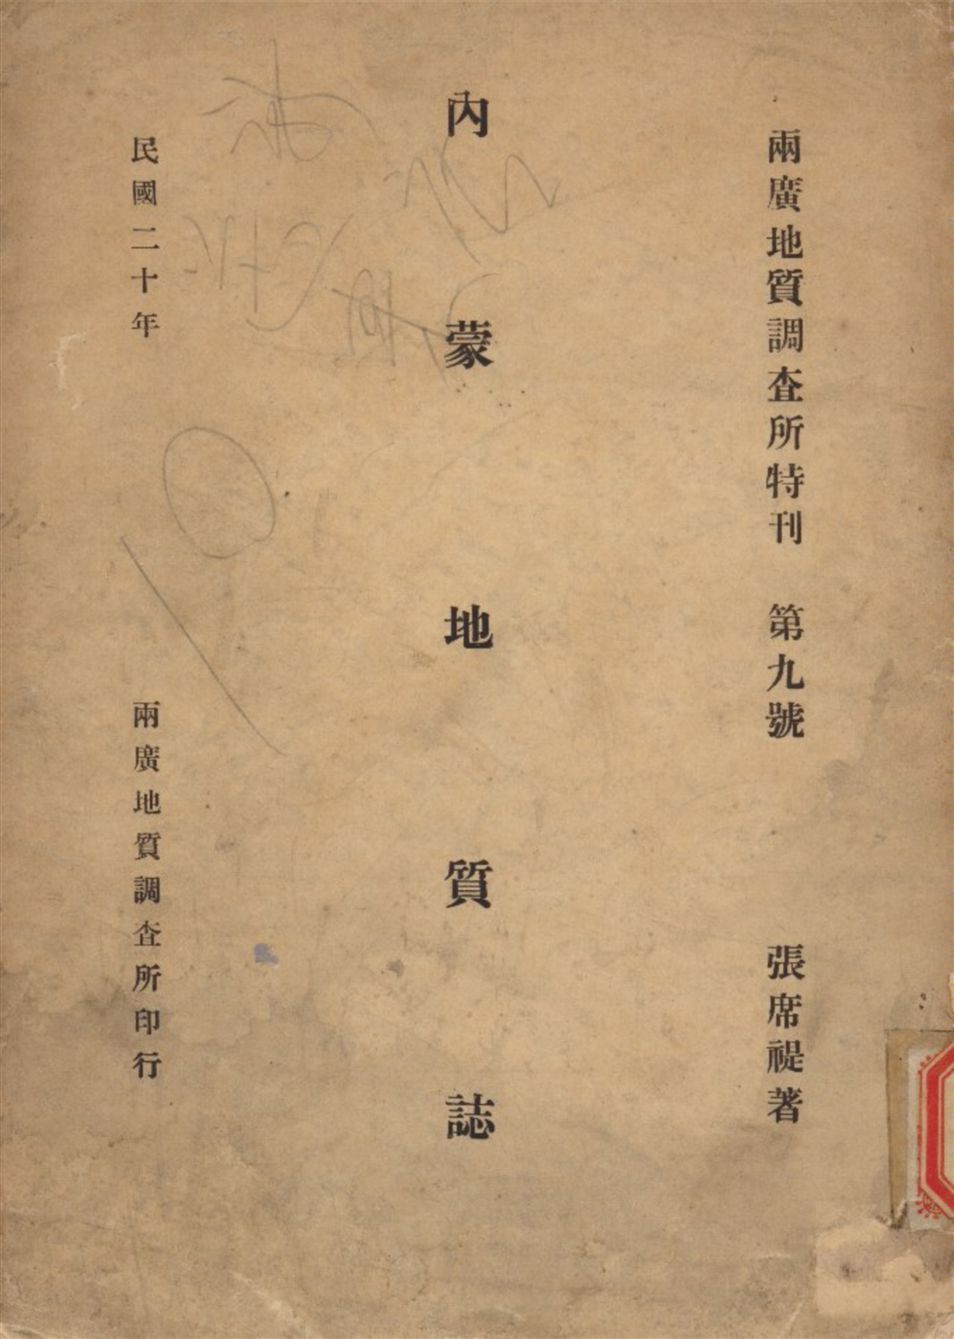 兩廣地質調查所特刊 第九號 張席禔著
內蒙地質誌
民國二十年 兩廣地質調查所印行